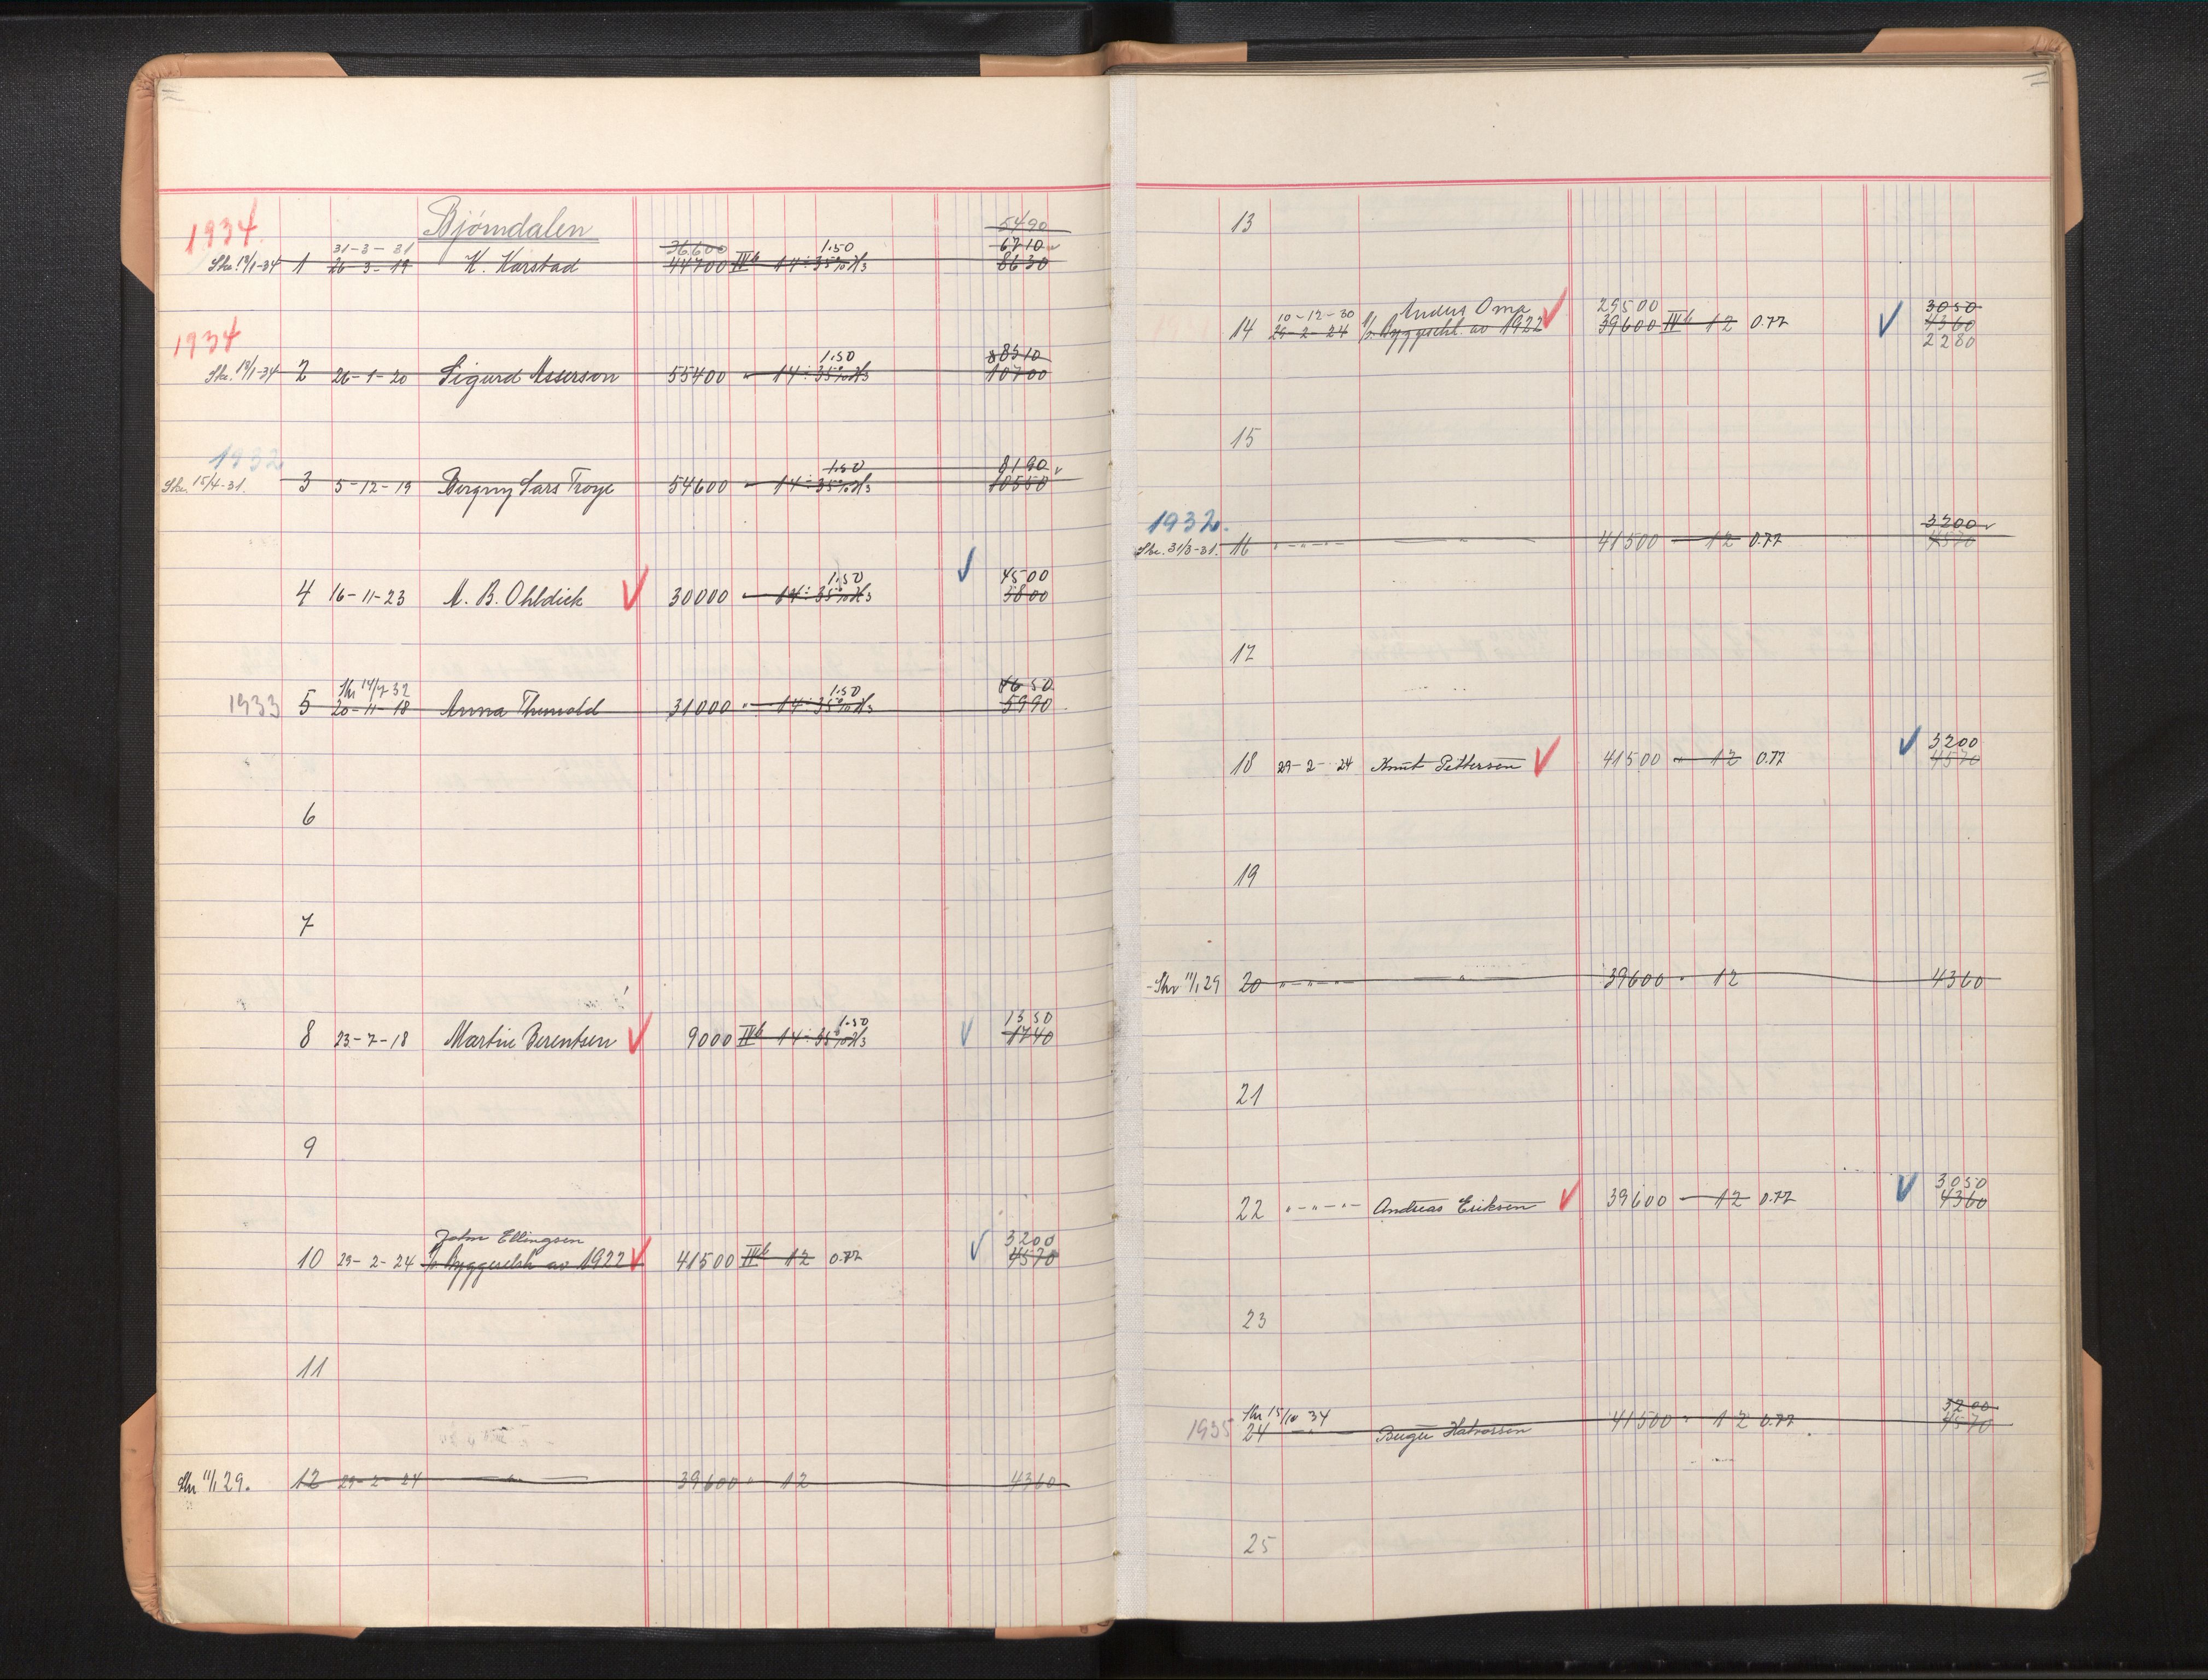 1934. Bjørndalen 5490
31-3-31 36.600 1.50 6710
Skr. 19/1-34 1 26-3-19 K. Karstad 44700 IVb 14 : 35% H3 8630
1934
1.50 8310
Skr. 19/1-34 2 26-1-20 Sigurd Asserson 55400 " 14 : 35% H3 10700
1932 1.50 8190
Skr. 15/4-31. 3 5-12-19 Lars Troye 54600 " 14 : 35% H3 10550
1.50 4500
4 16-11-23 M. B. Ohldick 30000 " 14 : 35% H3 5800
Skr 14/7 32 1.50 4650
1933 5 20-11-18 Anna 31000 " 14 : 35% H3 5990
6
7
1.50 1350
8 23-7-18 Martin Berentsen 9000 IVb 14 : 35% H3 1740
9
John Ellingsen 3200
10 29-2-24 Byggeselsk av 1922 41500 IVb 12 0.77 4570
11
Skr 11/1 29. 12 29-2-24 " 39600 " 12 4360
13
10-12-30 Anders Oma 29500 3050
14 29-2-24 Byggeselsk. av 1922 39600 IVb 12 0.77 4360
2280
15
1932. 3200
Skr. 31/3-31. 16 " - " - " - " 41500 - 12 0.77 4570
17
3200
18 29-2-24 Knut Pettersen 41500 " 12 0.77 4570
19
Skr 11/1 29 20 " - " - " - " 39600 " 12 4360
21
3050
22 " - " - " - Andreas Eriksen 39600 - 12 0.77 4360
23
Skr 15/10 34 3200
1935 24 - " - Halvorsen 41500 " 12 0.77 4570
25